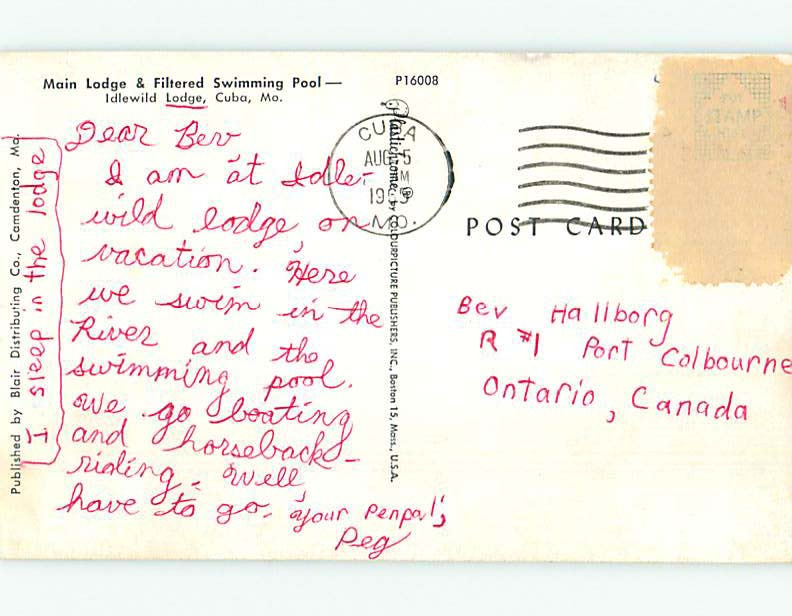 Main Lodge & Filtered Swimming Pool—
Idlewild Lodge, Cuba, Mo.
P16008
Dear Bev
I am at Idle-
wild lodge, on
vacation. Here
we swim in the
River and the
swimming pool.
We go boating
and horseback-
riding. Well
have to go. Your Penpal,
Peg
I sleep in the lodge
Published by Blair Distributing Co., Camdenton, Mo.
Plastichrome ® by COLOURPICTURE PUBLISHERS, INC., Boston 15, Mass., U.S.A.
CUBA
AUG 5
M
MO.
POST CARD
STAMP
Bev Hallborg
R #1 Port Colbourne
Ontario, Canada